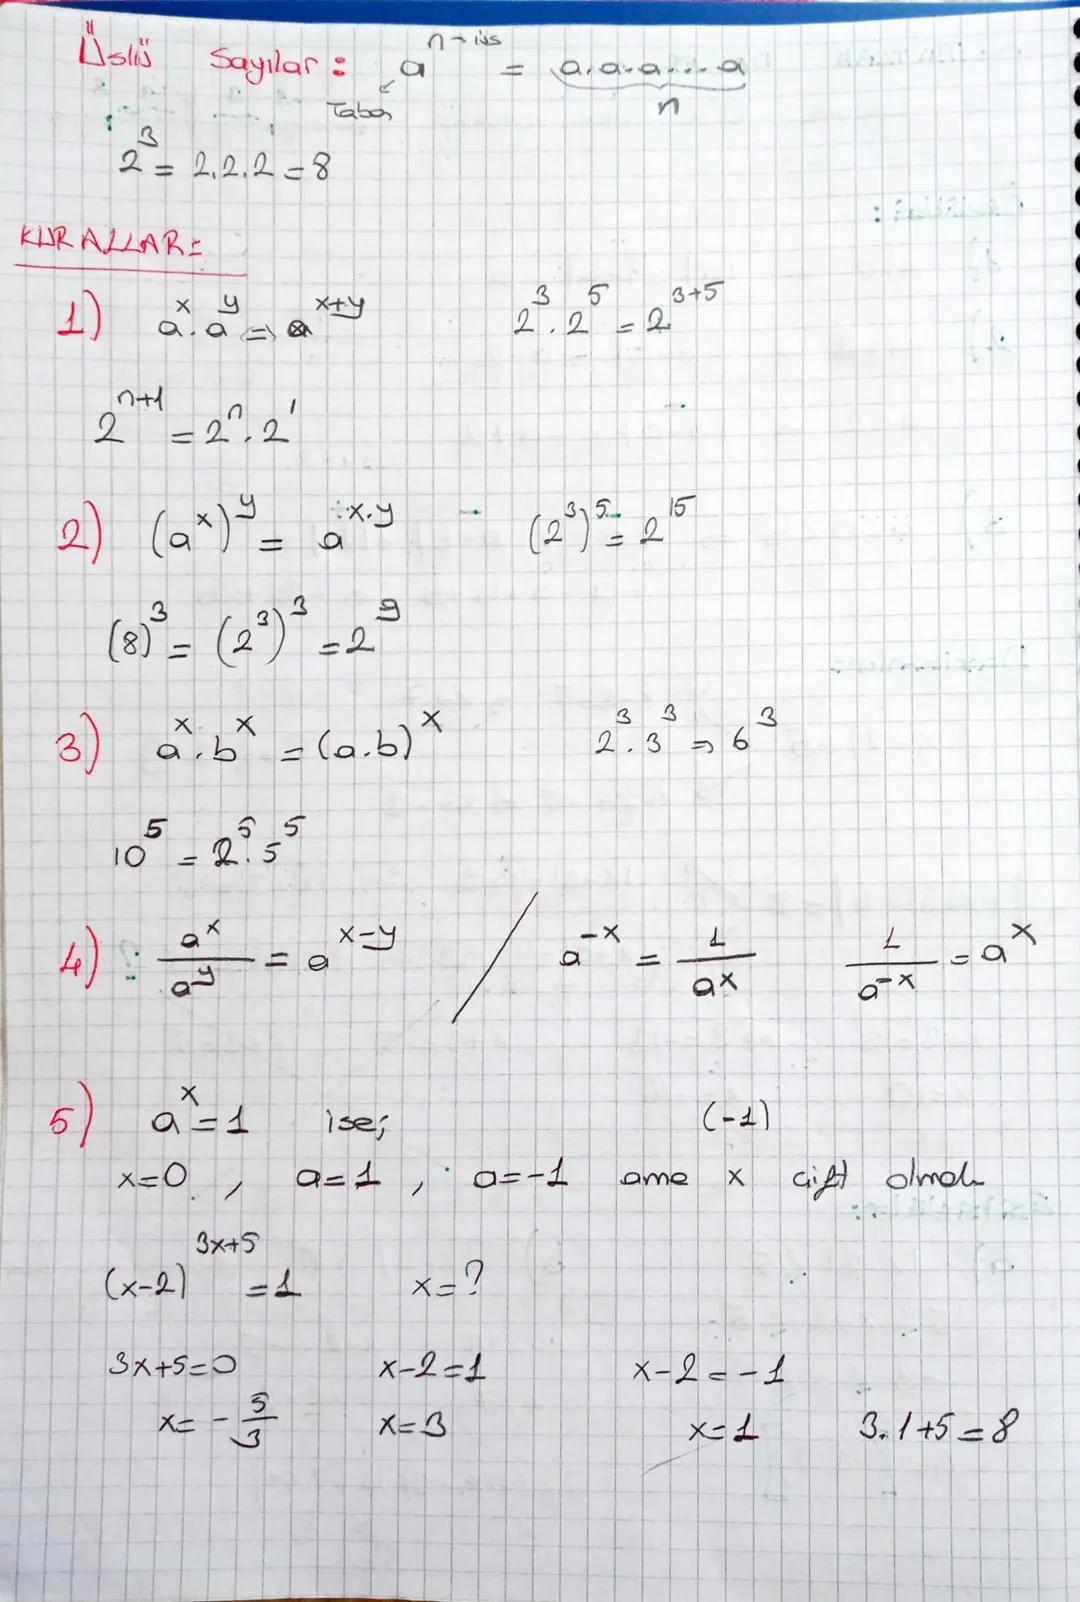 Üslü Sayılar : aⁿ → üs = a.a.a...a
Taban n
2³ = 2.2.2 = 8
KURALLAR:
1) aˣ.aʸ => aˣ⁺ʸ 2³.2⁵ = 2³⁺⁵
2ⁿ⁺¹ = 2ⁿ.2¹
2) (aˣ)ʸ = aˣ·ʸ (2³)⁵ = 2¹⁵
(8)³ = (2³)³ = 2⁹
3) aˣ.bˣ = (a.b)ˣ 2³.3³ => 6³
10⁵ = 2⁵.5⁵
4) aˣ/aʸ = aˣ⁻ʸ / a⁻ˣ = 1/aˣ 1/a⁻ˣ = aˣ
5) aˣ = 1 ise; (-1)
x=0, a=1, a=-1 ama x çift olmalı
(x-2)³ˣ⁺⁵ = 1 x=?
3x+5=0 x-2=1 x-2=-1
x= -5/3 x=3 x=1 3.1+5=8